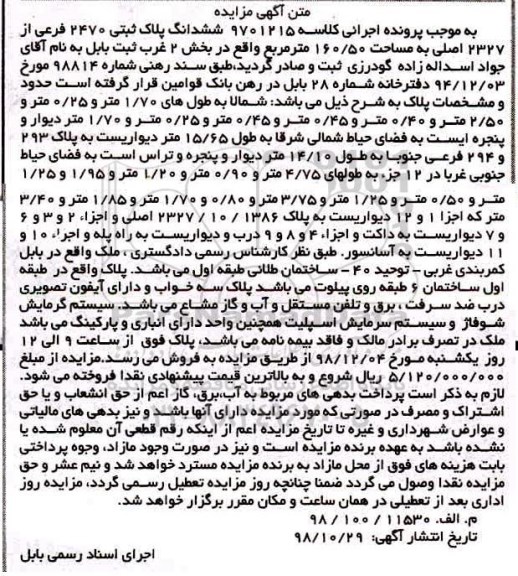 متن آگهی مزایده
به موجب پرونده اجرائی کلاسه ۹۷۰۱۲۱۵ ششدانگ پلاک ثبتی ۲۴۷۰ فرعی از
۲۳۲۷ اصلی به مساحت ۱۶۰/۵۰ مترمربع واقع در بخش ۲ غرب ثبت بابل به نام آقای
جواد اسداله زاده گودرزی ثبت و صادر گردید،طبق سند رهنی شماره ۹۸۸۱۴ مورخ
۹۴/۱۲/۰۳ دفترخانه شماره ۲۸ بابل در رهن بانک قوامین قرار گرفته است حدود
و مشخصات پلاک به شرح ذیل می باشد: شمالا به طول های ۱/۷۰ متر و ۰/۲۵ متر و
۲/۵۰ متر و ۰/۴۰ متر و ۰/۴۵ متر و ۰/۴۵ متر و ۰/۲۵ متر و ۱/۷۰ متر دیوار و
پنجره ایست به فضای حیاط شمالی شرقا به طول ۱۵/۶۵ متر دیواریست به پلاک ۲۹۳
و ۲۹۴ فرعی جنوبا به طول ۱۴/۱۰ متر دیوار و پنجره و تراس است به فضای حیاط
جنوبی غربا در ۱۲ جزء به طولهای ۴/۷۵ متر و ۰/۹۰ متر و ۱/۲۰ متر و ۱/۹۵ و ۱/۲۵
متر و ۰/۵۰ متر و ۱/۲۵ متر و ۳/۷۵ متر و ۰/۸۰ و ۱/۷۰ متر و ۱/۸۵ متر و ۳/۴۰
متر که اجزا ۱ و ۱۲ دیواریست به پلاک ۱۳۸۶ / ۱۰ / ۲۳۲۷ اصلی و اجزاء ۲ و ۳ و ۶
و ۷ دیواریست به داکت و اجزاء ۴ و ۸ و ۹ درب و دیواریست به راه پله و اجزاء ۱۰ و
۱۱ دیواریست به آسانسور. طبق نظر کارشناس رسمی دادگستری ، ملک واقع در بابل
کمربندی غربی – توحید ۴۰ – ساختمان طلائی طبقه اول می باشد. پلاک واقع در طبقه
اول ساختمان ۶ طبقه روی پیلوت می باشد پلاک سه خواب و دارای آیفون تصویری
درب ضد سرقت ، برق و تلفن مستقل و آب و گاز مشاع می باشد. سیستم گرمایش
شوفاژ و سیستم سرمایش اسپلیت همچنین واحد دارای انباری و پارکینگ می باشد
ملک در تصرف برادر مالک و فاقد بیمه نامه می باشد. پلاک فوق از ساعت ۹ الی ۱۲
روز یکشنبه مورخ ۹۸/۱۲/۰۴ از طریق مزایده به فروش می رسد.مزایده از مبلغ
۵/۱۲۰/۰۰۰/۰۰۰ ریال شروع و به بالاترین قیمت پیشنهادی نقدا فروخته می شود.
لازم به ذکر است پرداخت بدهی های مربوط به آب،برق، گاز اعم از حق انشعاب و یا حق
اشتراک و مصرف در صورتی که مورد مزایده دارای آنها باشد و نیز بدهی های مالیاتی
و عوارض شهرداری و غیره تا تاریخ مزایده اعم از اینکه رقم قطعی آن معلوم شده یا
نشده باشد به عهده برنده مزایده است و نیز در صورت وجود مازاد، وجوه پرداختی
بابت هزینه های فوق از محل مازاد به برنده مزایده مسترد خواهد شد و نیم عشر و حق
مزایده نقدا وصول می گردد ضمنا چنانچه روز مزایده تعطیل رسمی گردد، مزایده روز
اداری بعد از تعطیلی در همان ساعت و مکان مقرر برگزار خواهد شد.
م. الف. ۱۱۵۳۰ / ۱۰۰ / ۹۸
تاریخ انتشار آگهی: ۹۸/۱۰/۲۹
اجرای اسناد رسمی بابل